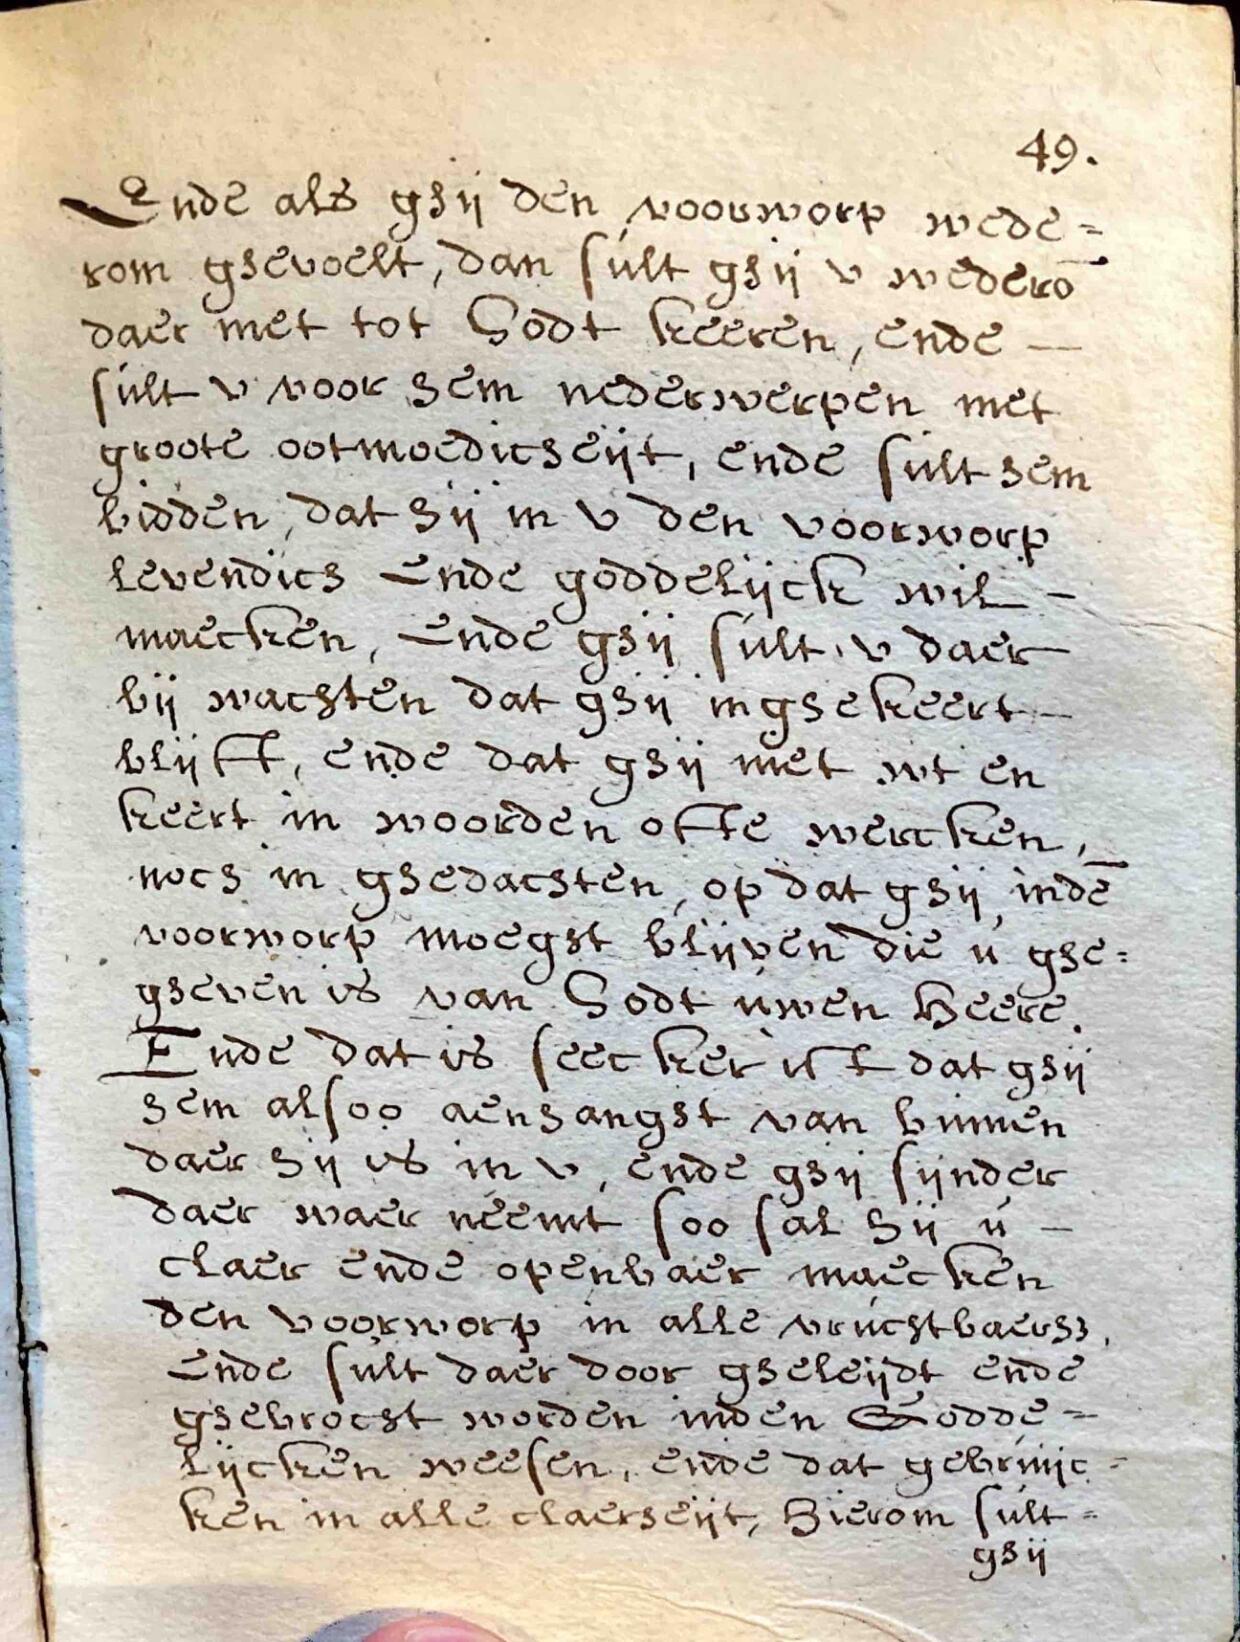 49.
Ende als ghij den voorworp wede=
rom ghevoelt, dan sult ghij v wederō
daer met tot Godt keeren, ende —
sult v voor hem nederwerpen met
groote ootmoedicheijt, ende sult hem
bidden, dat hij in v den voorworp
levendich Ende goddelijck wil —
maecken, Ende ghij sult v daer
bij wachten dat ghij inghekeert —
blijft, ende dat ghij niet wt en
keert in woorden ofte wercken,
noch in ghedachten, op dat ghij, indē
voorworp moeght blijven die u ghe=
gheven is van Godt uwen Heere.
Ende dat is seecker ist dat ghij
hem alsoo aenhanght van binnen
daer hij is in v, ende ghij sijnder
daer waer neemt soo sal hij u —
claer ende openbaer maecken
den voorworp in alle vruchtbaerh3,
Ende sult daer door gheleijdt ende
ghebrocht worden inden Godde=
lijcken weesen, ende dat gebruijc=
ken in alle claerheijt, Hierom sult=
ghij